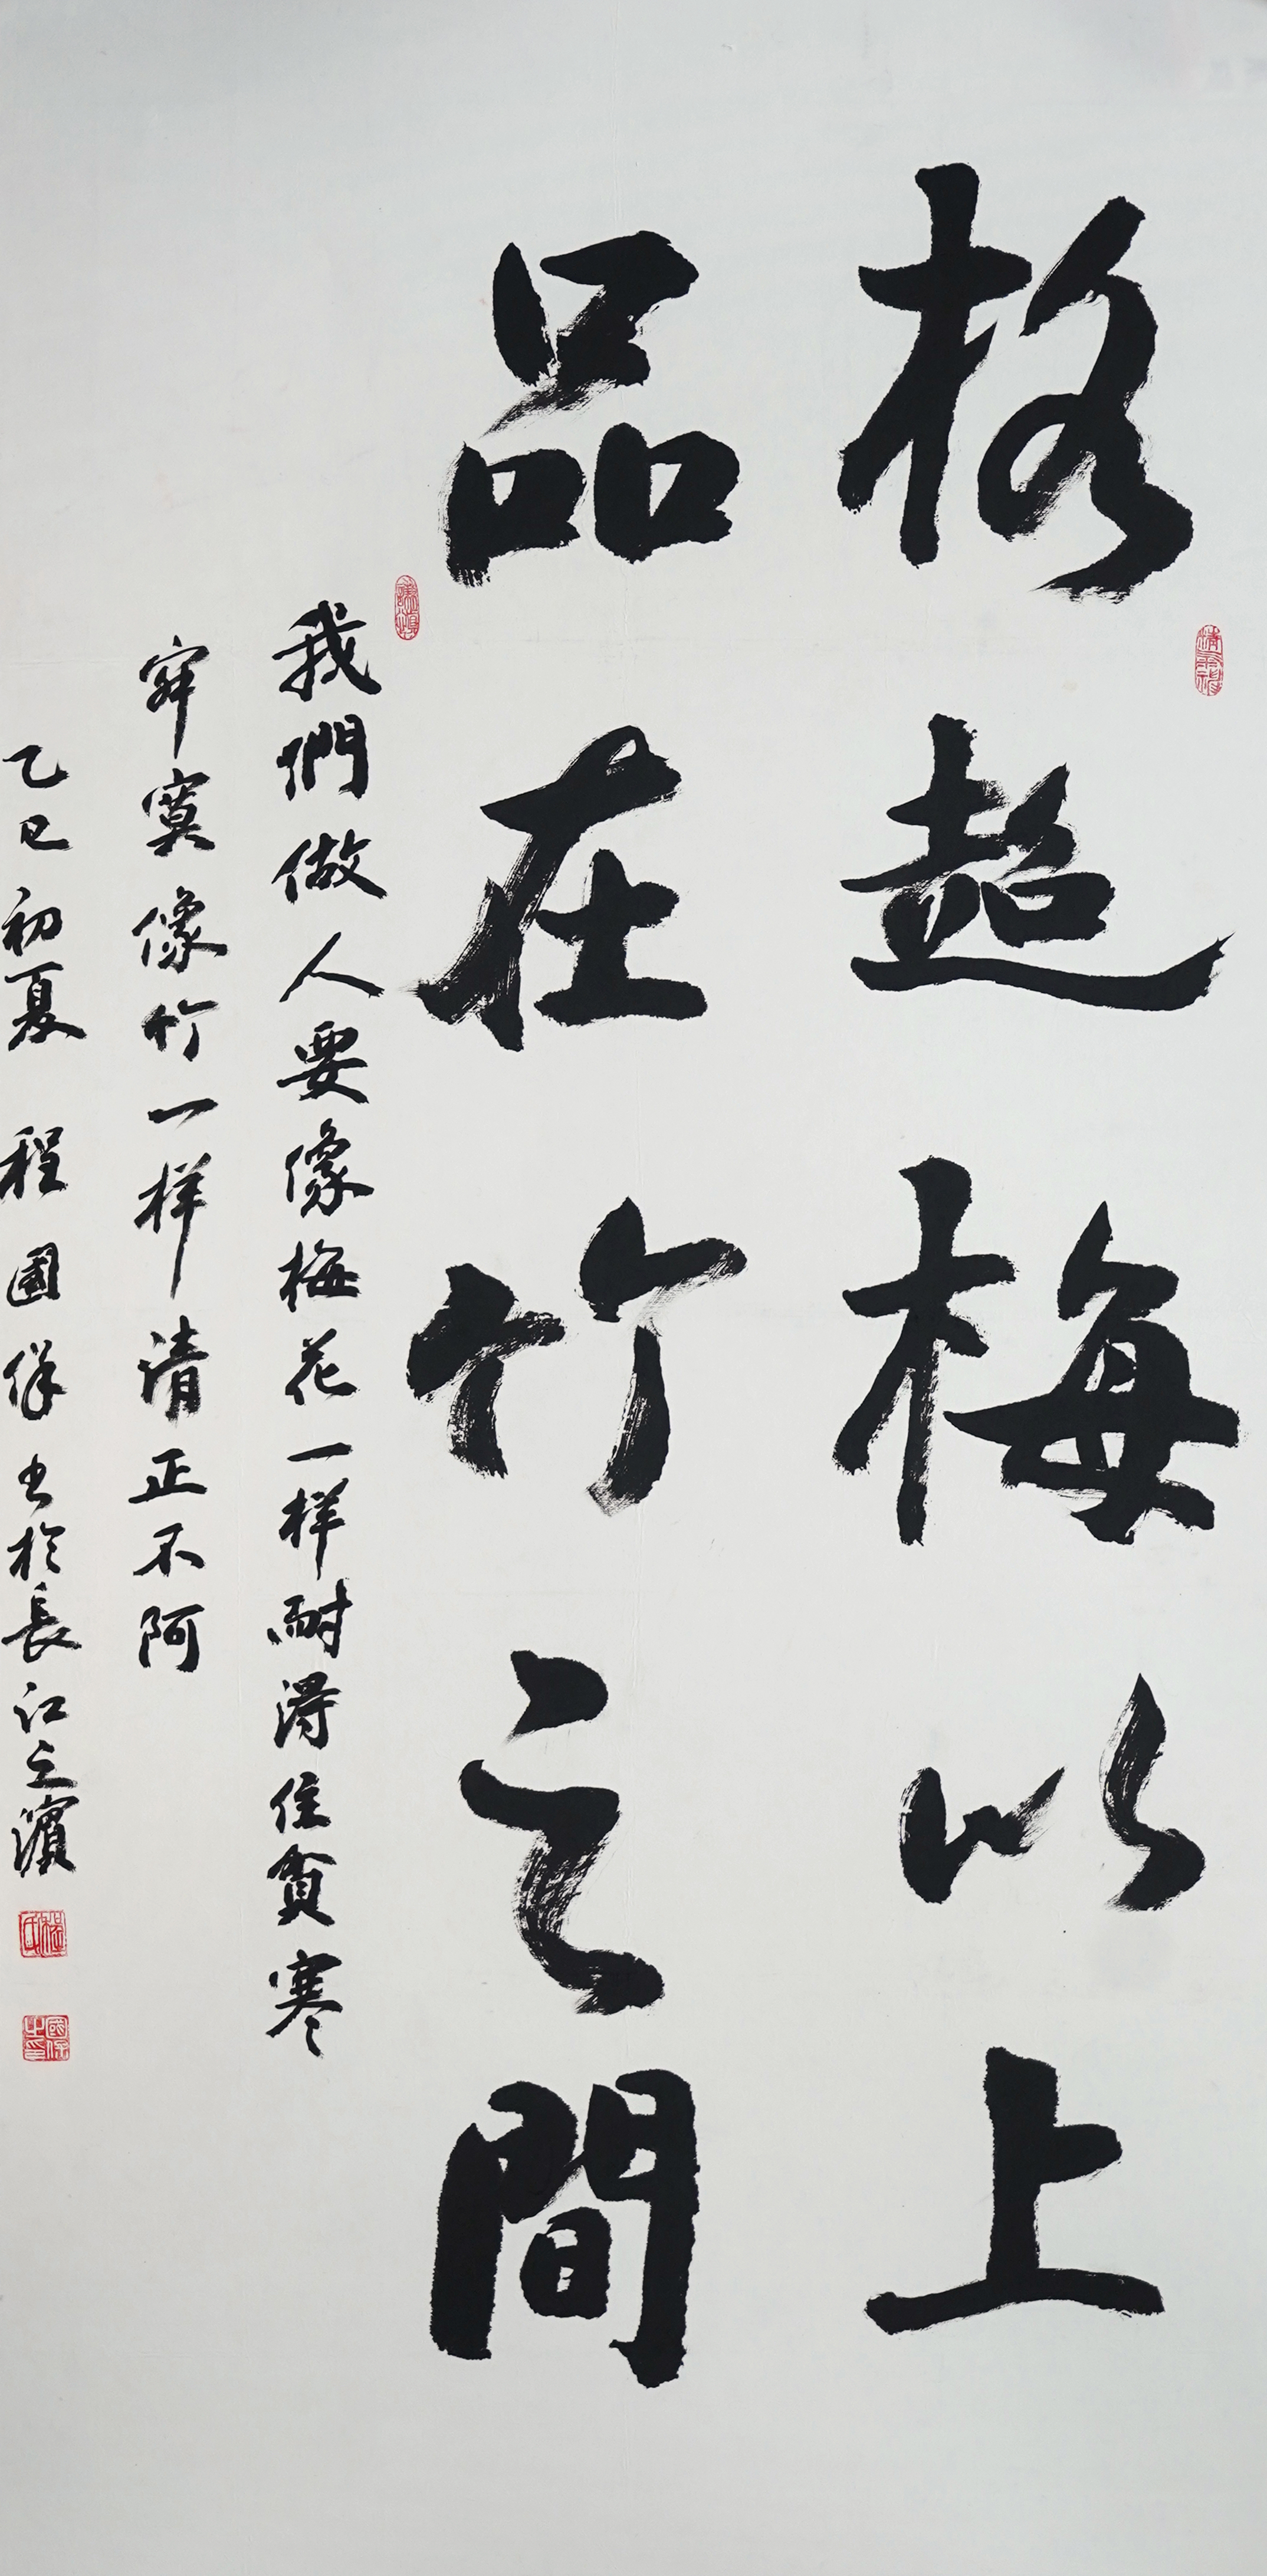 格超梅以上
品在竹之間
我們做人要像梅花一样耐得住貧寒
寂寞像竹一样清正不阿
乙巳初夏 程國保书於長江之濱
程氏
國保之印